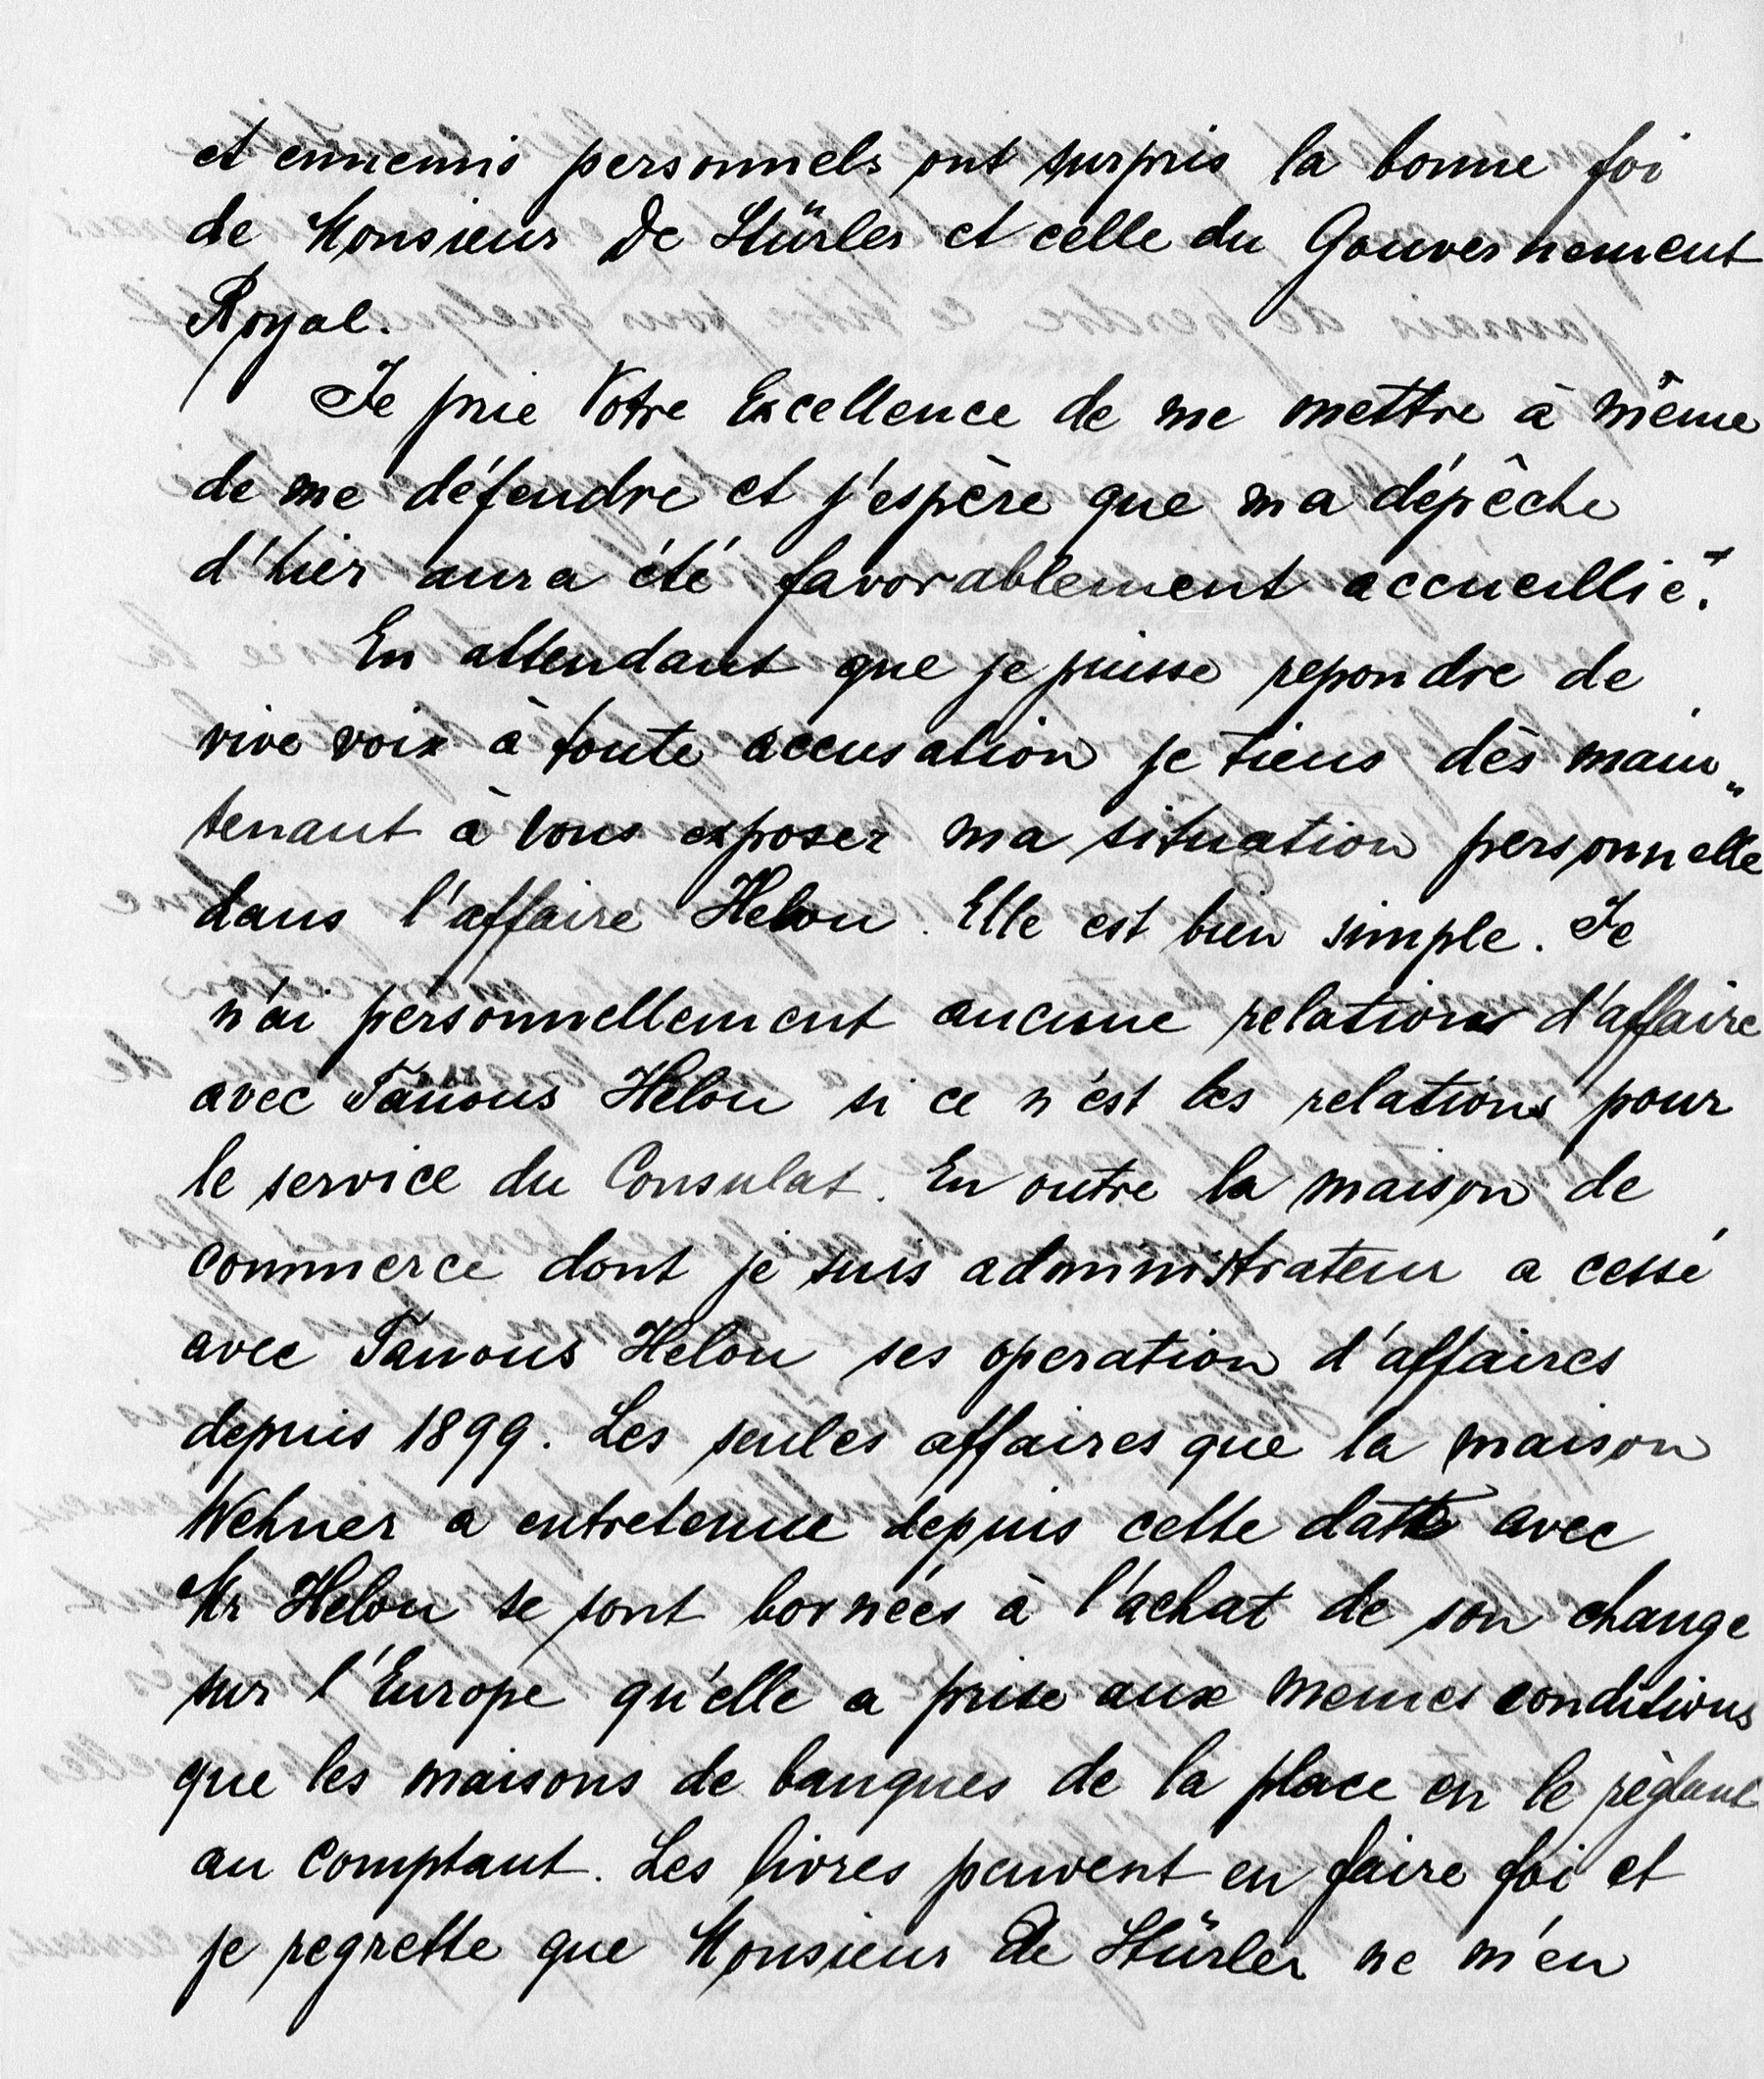 et ennemis personnels ont surpris la bonne foi
de Monsieur De Stürler et celle du Gouvernement
Royal.
Je prie Votre Excellence de me mettre à même
de me défendre et j'espère que ma dépêche
d'hier aura été favorablement accueillie.
En attendant que je puisse repondre de
vive voix à toute accusation je tiens dès main„
tenant à vous exposer ma situation personnelle
dans l'affaire Helou. Elle est bien simple. Je
n'ai personnellement aucune relations d'affaire
avec Tanous Helou si ce n'est les relations pour
le service du Consulat. En outre la maison de
commerce dont je suis administrateur a cessé
avec Tanous Helou ses operation d'affaires
depuis 1899. Les seules affaires que la maison
Wehner a entretenue depuis cette date avec
Mr Helou se sont bornées à l'achat de son change
sur l'Europe qu'elle a prise aux memes conditions
que les maisons de banques de la place en le règlant
au comptant. Les livres peuvent en faire foi et
je regrette que Monsieur de Stürler ne m'en